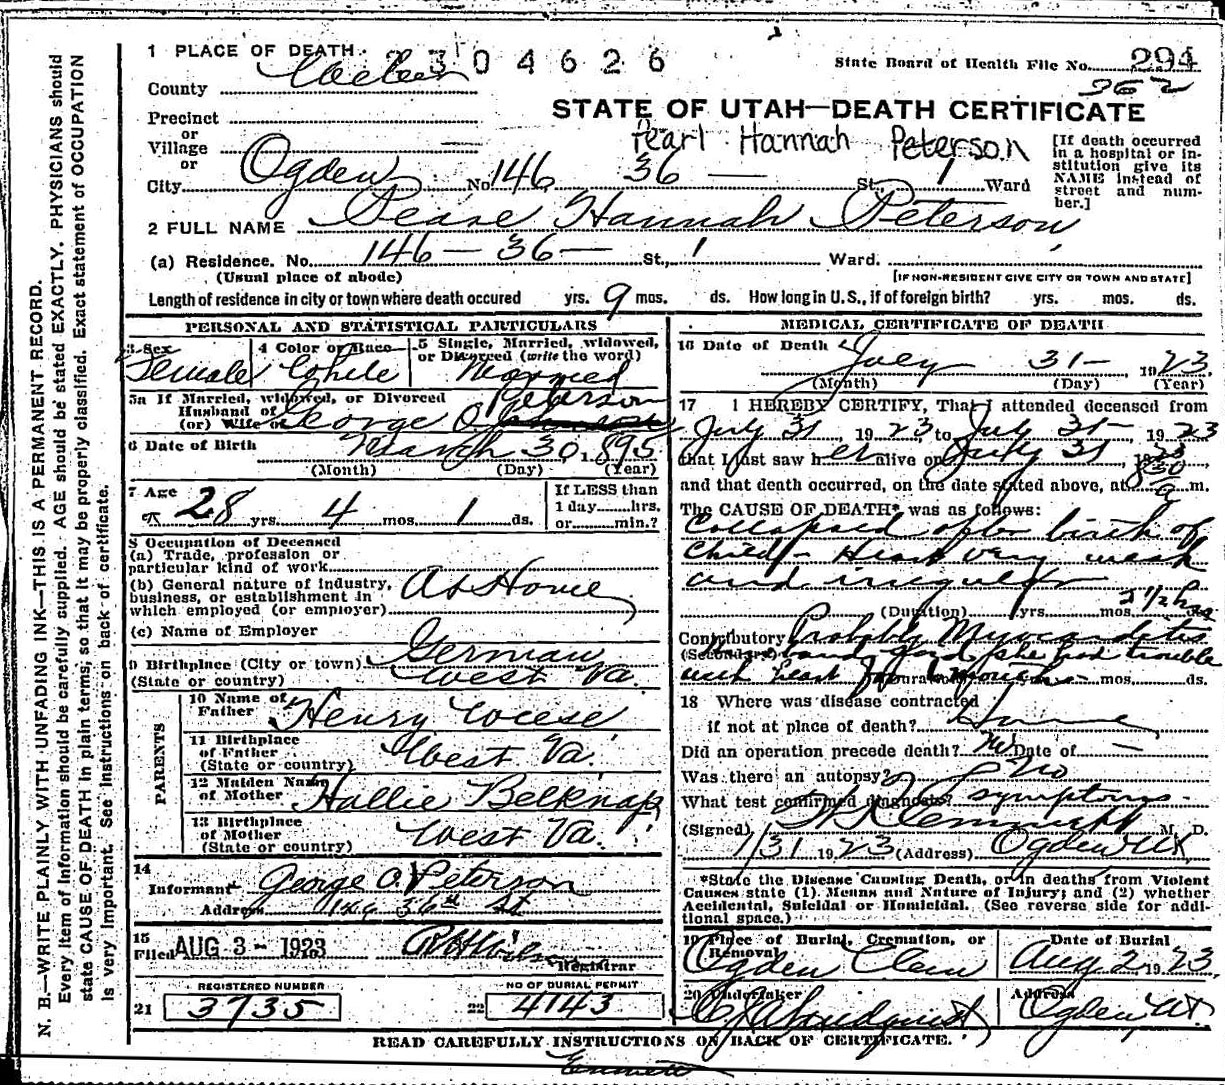 1 PLACE OF DEATH. 2304626
State Board of Health File No. 294
362
County Weber
STATE OF UTAH—DEATH CERTIFICATE
Pearl Hannah Peterson
Precinct
or
Village
or
City Ogden No. 146 36 — St., 1 Ward
[If death occurred in a hospital or institution give its NAME instead of street and number.]
2 FULL NAME Pearl Hannah Peterson
(a) Residence. No. 146 — 36 — St., 1 Ward.
(Usual place of abode) [IF NON-RESIDENT GIVE CITY OR TOWN AND STATE]
Length of residence in city or town where death occured yrs. 9 mos. ds. How long in U. S., if of foreign birth? yrs. mos. ds.
PERSONAL AND STATISTICAL PARTICULARS
3 Sex Female
4 Color or Race White
5 Single, Married, widowed, or Divorced (write the word) Married
5a If Married, widowed, or Divorced
Husband of
(or) Wife of George O. Peterson
6 Date of Birth March 30, 1895
(Month) (Day) (Year)
7 Age 28 yrs. 4 mos. 1 ds.
If LESS than 1 day......hrs. or......min.?
8 Occupation of Deceased
(a) Trade, profession or particular kind of work
(b) General nature of industry, business, or establishment in which employed (or employer) At Home
(c) Name of Employer
9 Birthplace (City or town) German
(State or country) West Va.
PARENTS
10 Name of Father Henry Weese
11 Birthplace of Father (State or country) West Va.
12 Maiden Name of Mother Hallie Belknap
13 Birthplace of Mother (State or country) West Va.
14 Informant George O. Peterson
Address 146 36th St
15 Filed AUG 3 - 1923
Registrar
REGISTERED NUMBER
21 3735
NO OF BURIAL PERMIT
22 4143
MEDICAL CERTIFICATE OF DEATH
16 Date of Death July 31 — 1923.
(Month) (Day) (Year)
17 I HEREBY CERTIFY, That I attended deceased from
July 31, 1923 to July 31 —, 1923
that I last saw her alive on July 31 1923
and that death occurred, on the date stated above, at 830 a m.
The CAUSE OF DEATH* was as follows:
Collapsed after birth of
Child — Heart very weak
and irregular
(Duration) yrs. mos. 2 1/2 hrs ds.
Contributory Probably Myocarditis
(Secondary) Husband said she had trouble
with heart for (Duration) months yrs. mos. ds.
18 Where was disease contracted
if not at place of death? Home
Did an operation precede death? No Date of —
Was there an autopsy? No
What test confirmed diagnosis? symptoms -
(Signed) Emmett M. D.
7/31 1923 (Address) Ogden Ut.
*State the Disease Causing Death, or in deaths from Violent
Causes state (1) Means and Nature of Injury; and (2) whether
Accidental, Suicidal or Homicidal. (See reverse side for additional space.)
19 Place of Burial, Cremation, or Removal Ogden
Date of Burial Aug 2 1923.
20 Undertaker Lindquist
Address Ogden, Ut.
READ CAREFULLY INSTRUCTIONS ON BACK OF CERTIFICATE.
Emmett
N. B.—WRITE PLAINLY WITH UNFADING INK—THIS IS A PERMANENT RECORD.
Every item of information should be carefully supplied. AGE should be stated EXACTLY. PHYSICIANS should
state CAUSE OF DEATH in plain terms, so that it may be properly classified. Exact statement of OCCUPATION
is very important. See instructions on back of certificate.